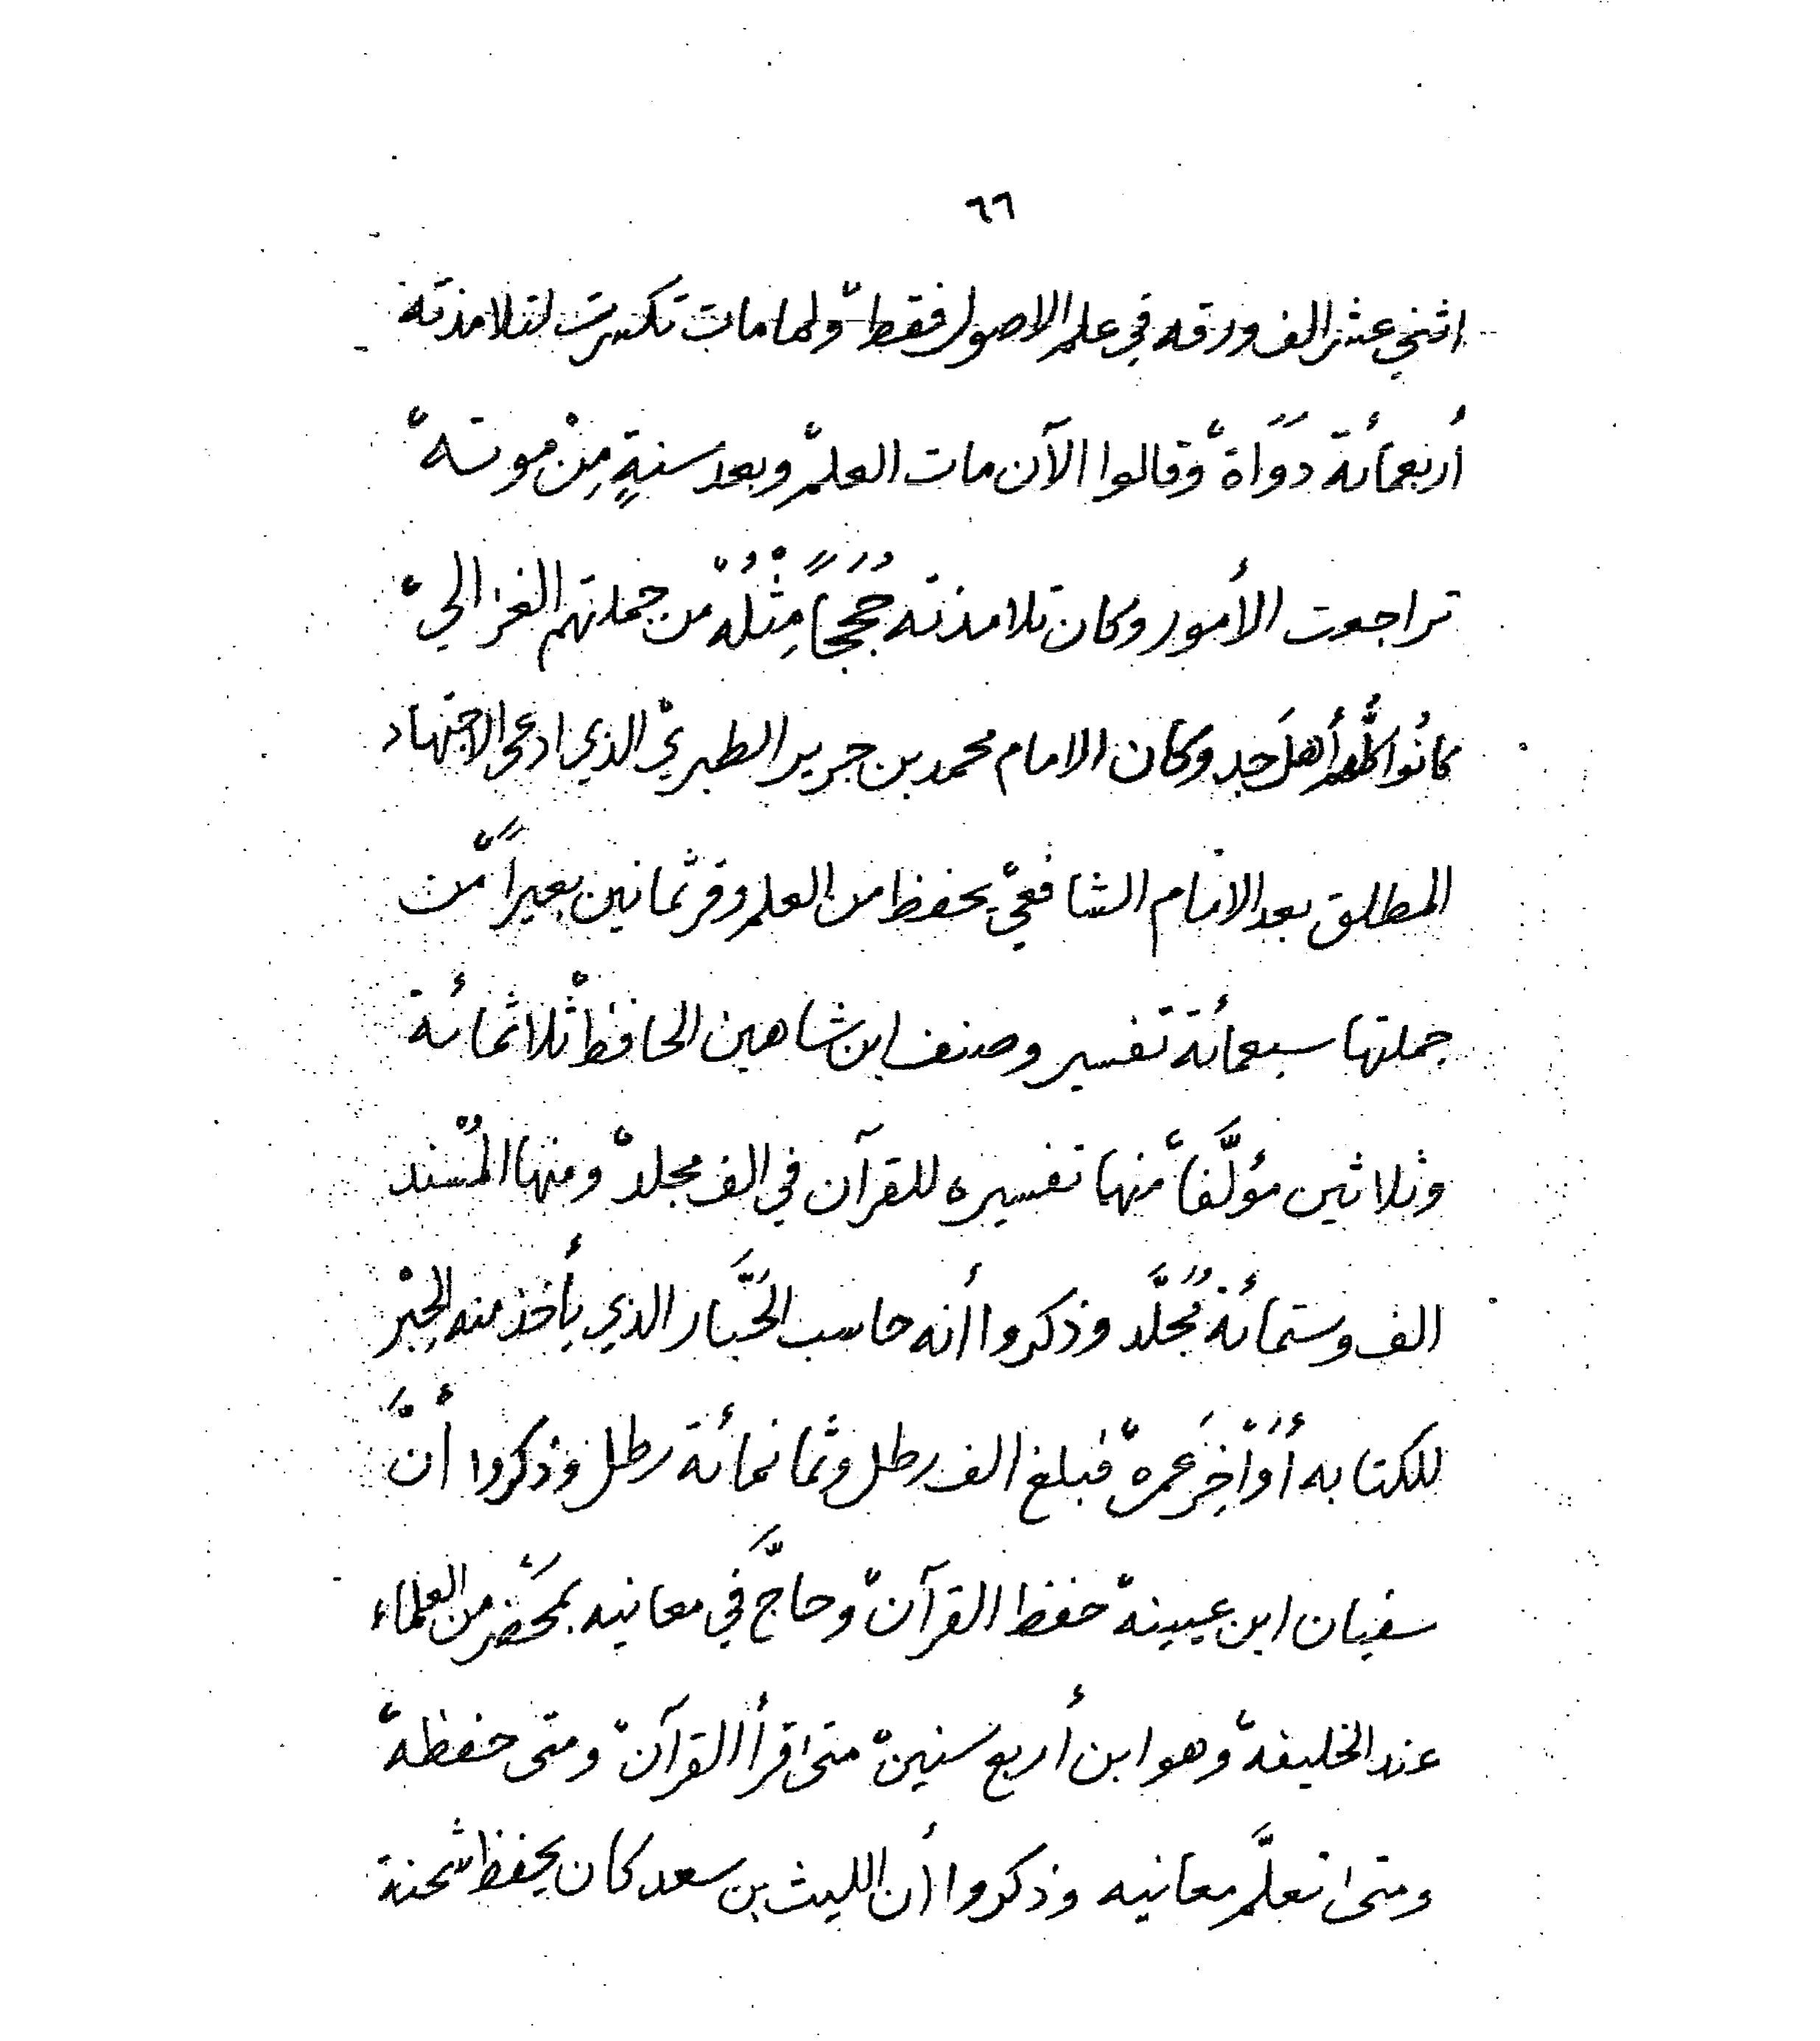 ٦٦
اثني عشر الف ورقه في علم الاصول فقط ولما مات تكسرت لتلامذته
أربعمائة دَوَاة وقالوا الآن مات العلم وبعد سنةٍ مِنْ موته
تراجعت الأمور وكان تلامذته حُجَجاً مِثْلُهُ من جملتهم الغزالي
كانُوا كلُّهم أهلَ جِد وكان الامام محمد بن جرير الطبري الذي ادعى الاجتهاد
المطلق بعد الامام الشافعي يحفظ من العلم وقر ثمانين بعيراً من
جملتها سبعمائة تفسير وصنف ابن شاهين الحافظ ثلاثمائة
وثلاثين مؤلَّفاً منها تفسيره للقرآن في الف مجلد ومنها المُسْند
الف وستمائة مُجلَّد وذكروا أنه حاسب الحَبَّار الذي يأخذ منه الحِبْر
للكتابه أوَاخِرَ عمره فبلغ الف رطل وثمانمائة رطل وذكروا أنَّ
سفيان ابن عيينة حفظ القرآن وحاجَّ في معانيه بمحْضَر من العلماء
عند الخليفة وهو ابن أربع سنين متى اقرأ القرآن ومتى حفظه
ومتى اتعلَّم معانيه وذكروا أن الليث بن سعد كان يحفظ شحنة